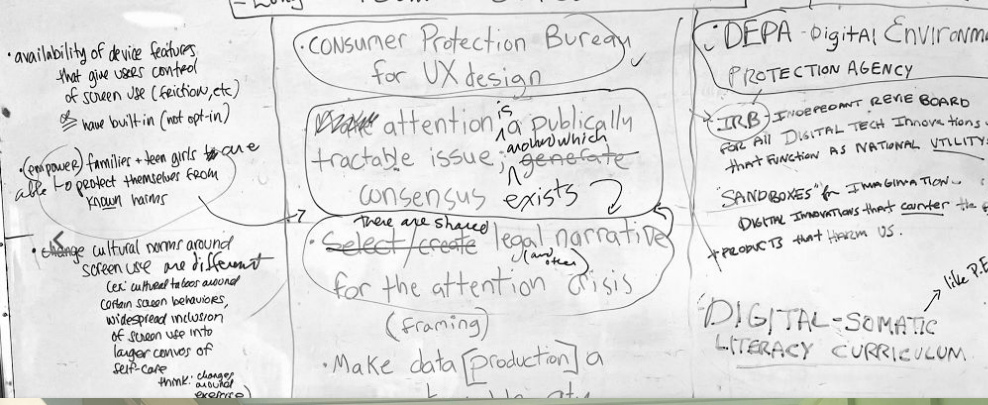 · availability of device features
that give users control
of screen use (friction, etc)
have built-in (not opt-in)
· (empower) families + teen girls are
able to protect themselves from
known harms
· change cultural norms around
screen use are different
(ex: cultural taboos around
certain screen behaviors,
widespread inclusion
of screen use into
larger convos of
self-care
think: changes
around
exercise)
· CONSUMER Protection Bureau
for UX design
attention is a publically
tractable issue, around which
generate
consensus exists
there are shared
· Select/create legal narrative
(and other)
for the attention crisis
(framing)
· Make data [production] a
: DEPA - Digital Environm
PROTECTION AGENCY
IRB - INDEPEDANT REVIE BOARD
FOR ALL DIGITAL TECH Innovations
that FUNCTION AS NATIONAL UTILITY
"SANDBOXES" for IMAGINATION
DIGITAL INNOVATIONS that counter the
+ PRODUCTS that HARM US.
like P.E
DIGITAL-SOMATIC
LITERACY CURRICULUM